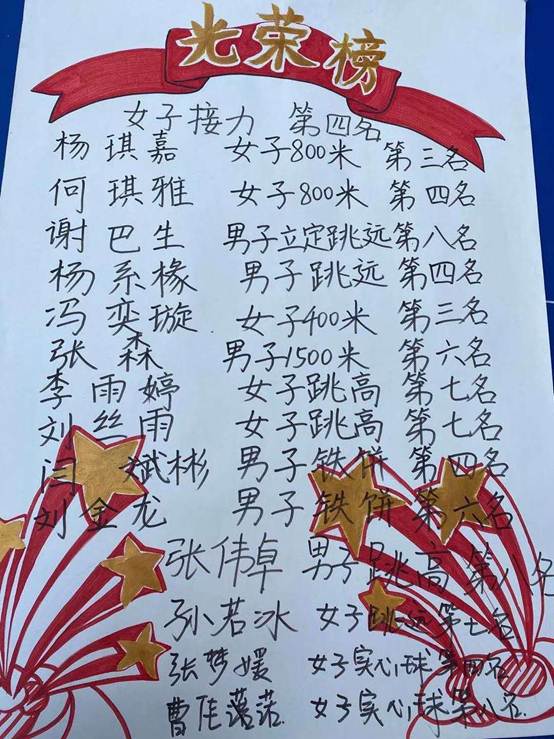 光荣榜
女子接力 第四名
杨琪嘉 女子800米 第三名
何琪雅 女子800米 第四名
谢巴生 男子立定跳远第八名
杨系椽 男子跳远 第四名
冯奕璇 女子400米 第三名
张森 男子1500米 第六名
李雨婷 女子跳高 第七名
刘丝雨 女子跳高 第七名
闫斌彬 男子铁饼 第四名
刘金龙 男子铁饼 第六名
张伟卓 男子跳高 第八名
孙若冰 女子跳远 第七名
张梦媛 女子实心球 第四名
曹佳 女子实心球 第八名